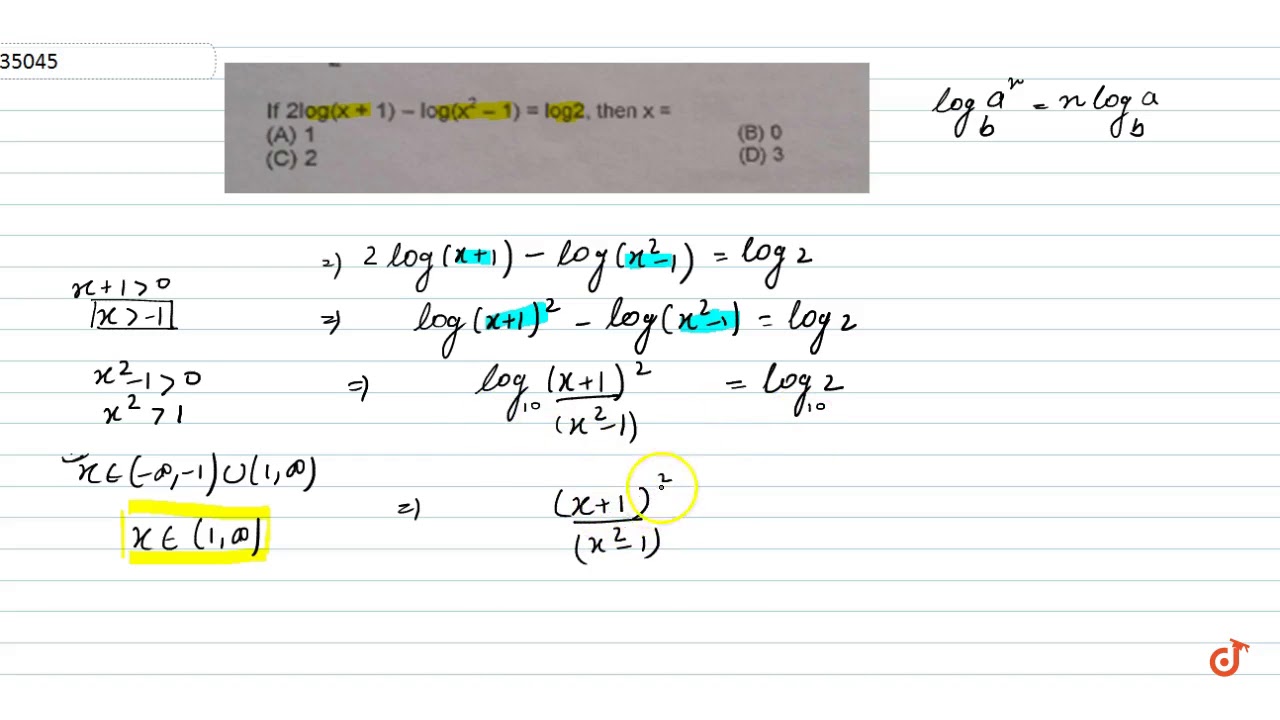 35045
If 2log(x + 1) – log(x² – 1) = log2, then x =
(A) 1 (B) 0
(C) 2 (D) 3
log_b a^n = n log_b a
=) 2 log(x+1) – log(x²–1) = log 2
x+1>0
x>-1
=) log(x+1)² – log(x²–1) = log 2
x²–1>0
x²>1
=) log₁₀ (x+1)²/(x²–1) = log₁₀ 2
x∈(-∞,-1)∪(1,∞)
x∈ (1,∞)
=) (x+1)²/(x²–1)